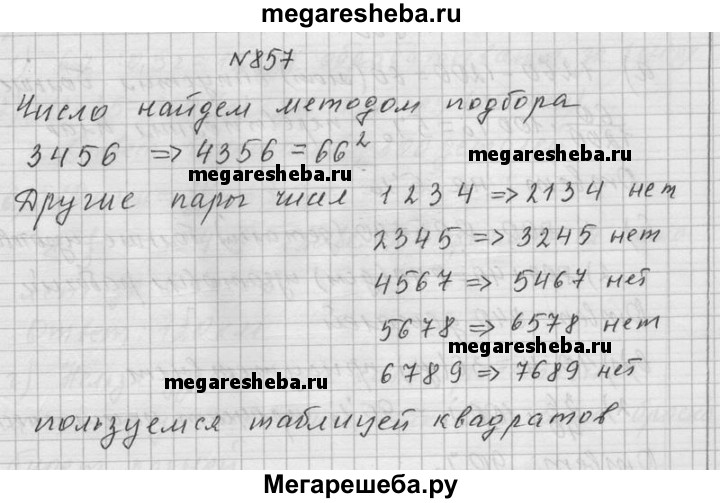 megaresheba.ru
№857
Число найдем методом подбора
3456 => 4356 = 66²
megaresheba.ru
megaresheba.ru
Другие пары чисел 1234 => 2134 нет
2345 => 3245 нет
4567 => 5467 нет
5678 => 6578 нет
megaresheba.ru
6789 => 7689 нет
megaresheba.ru
пользуемся таблицей квадратов
Мегарешеба.ру